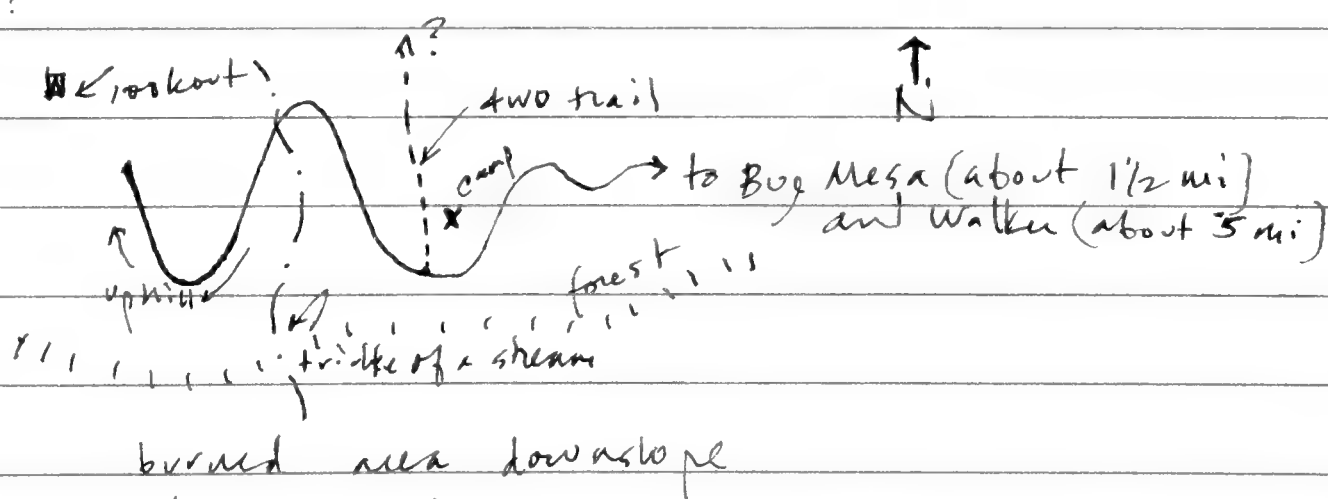 ?
lookout
?
4WD trail
N
camp
to Bug Mesa (about 1 1/2 mi)
and Walker (about 5 mi)
uphill
forest
trickle of a stream
burned area downslope